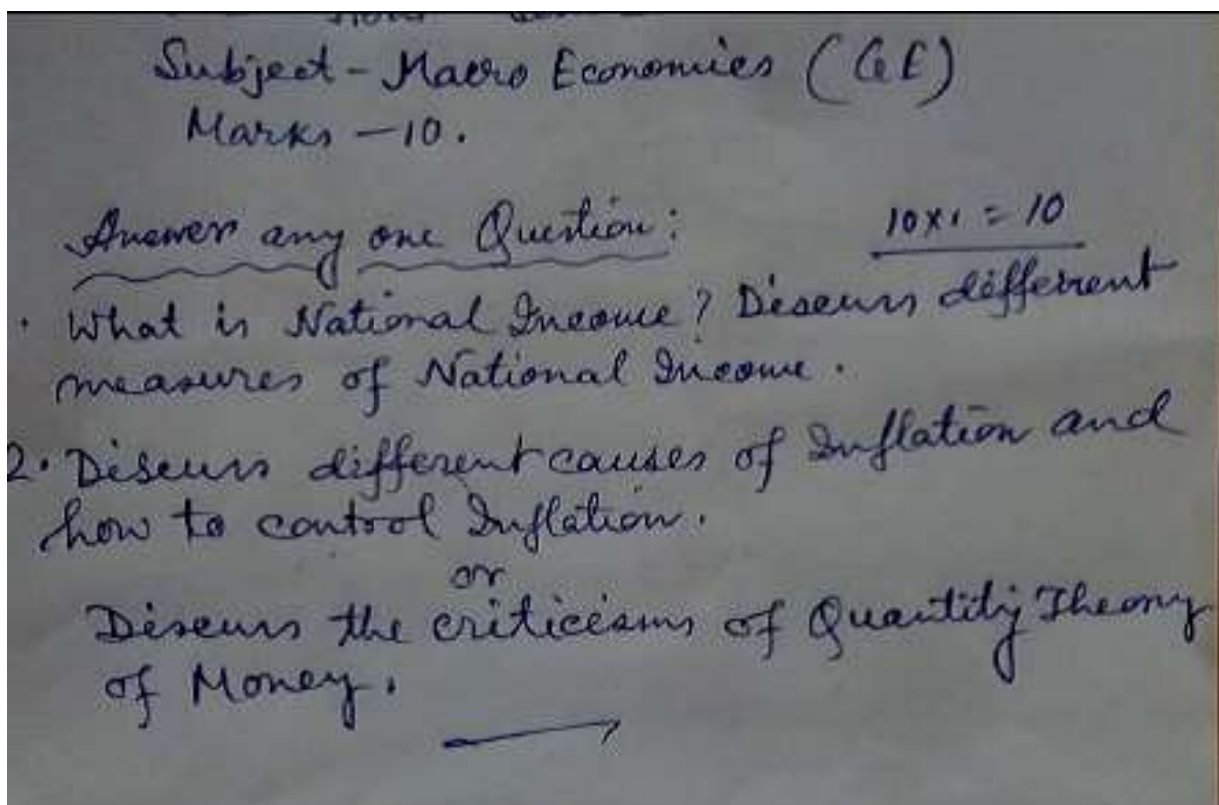 Subject - Macro Economics (GE)
Marks - 10.
Answer any one Question:
10x1 = 10
. What is National Income? Discuss different
measures of National Income.
2. Discuss different causes of Inflation and
how to control Inflation.
or
Discuss the criticisms of Quantity Theory
of Money.